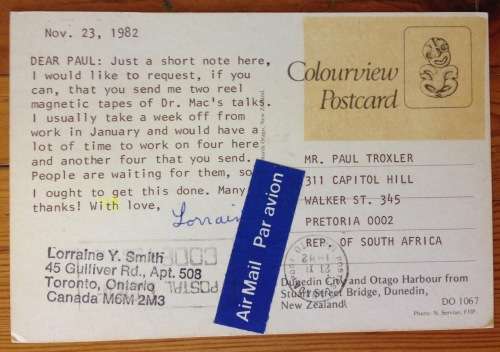 Nov. 23, 1982
DEAR PAUL: Just a short note here,
I would like to request, if you
can, that you send me two reel
magnetic tapes of Dr. Mac's talks.
I usually take a week off from
work in January and would have a
lot of time to work on four here
and another four that you send.
People are waiting for them, so
I ought to get this done. Many
thanks! With love,
Lorrain
Lorraine Y. Smith
45 Gulliver Rd., Apt. 508
Toronto, Ontario
Canada M6M 2M3
POSTAL
CODE
Air Mail Par avion
Colourview
Postcard
MR. PAUL TROXLER
311 CAPITOL HILL
WALKER ST. 345
PRETORIA 0002
REP. OF SOUTH AFRICA
Dunedin City and Otago Harbour from
Stuart Street Bridge, Dunedin,
New Zealand.
DO 1067
Photo: N. Servian, FIIP.